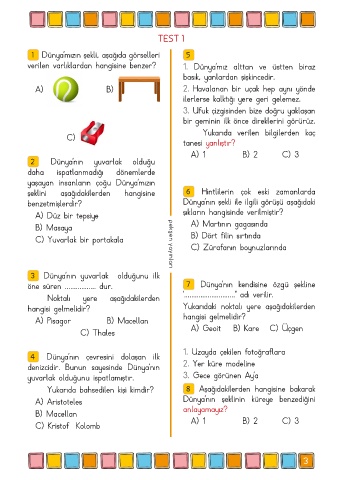 TEST 1
1 Dünya'mızın şekli, aşağıda görselleri
verilen varlıklardan hangisine benzer?
A)
B)
C)
2 Dünya'nın yuvarlak olduğu
daha ispatlanmadığı dönemlerde
yaşayan insanların çoğu Dünya'mızın
şeklini aşağıdakilerden hangisine
benzetmişlerdir?
A) Düz bir tepsiye
B) Masaya
C) Yuvarlak bir portakala
3 Dünya'nın yuvarlak olduğunu ilk
öne süren ................ dur.
Noktalı yere aşağıdakilerden
hangisi gelmelidir?
A) Pisagor B) Macellan
C) Thales
4 Dünya'nın çevresini dolaşan ilk
denizcidir. Bunun sayesinde Dünya'nın
yuvarlak olduğunu ispatlamıştır.
Yukarıda bahsedilen kişi kimdir?
A) Aristoteles
B) Macellan
C) Kristof Kolomb
pelikşen yayınları
5
1. Dünya'mız alttan ve üstten biraz
basık, yanlardan şişkincedir.
2. Havalanan bir uçak hep aynı yönde
ilerlerse kalktığı yere geri gelemez.
3. Ufuk çizgisinden bize doğru yaklaşan
bir geminin ilk önce direklerini görürüz.
Yukarıda verilen bilgilerden kaç
tanesi yanlıştır?
A) 1 B) 2 C) 3
6 Hintlilerin çok eski zamanlarda
Dünya'nın şekli ile ilgili görüşü aşağıdaki
şıkların hangisinde verilmiştir?
A) Martının gagasında
B) Dört filin sırtında
C) Zürafanın boynuzlarında
7 Dünya'nın kendisine özgü şekline
"..........................." adı verilir.
Yukarıdaki noktalı yere aşağıdakilerden
hangisi gelmelidir?
A) Geoit B) Kare C) Üçgen
1. Uzayda çekilen fotoğraflara
2. Yer küre modeline
3. Gece görünen Ay'a
8 Aşağıdakilerden hangisine bakarak
Dünya'nın şeklinin küreye benzediğini
anlayamayız?
A) 1 B) 2 C) 3
3